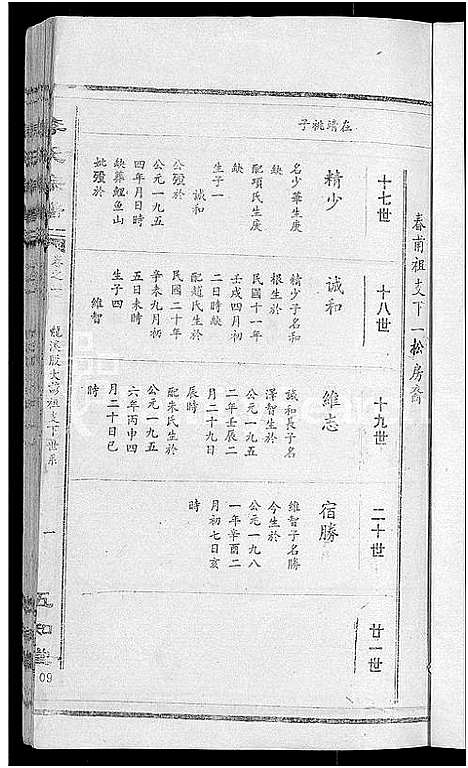 春甫祖支下一松房裔
十七世
十八世
十九世
二十世
廿一世
在靖祧子
精少
名少華生庚
缺
配項氏生庚
缺
生子一
誠和
公殁於
公元一九五
四年月日時
缺葬鯉魚山
妣殁於
誠和
精少子名和
根生於
民國十一年
壬戌四月初
二日時缺
配趙氏生於
民國二十年
辛未九月初
五日未時
生子四
維智
維志
誠和長子名
澤智生於
公元一九五
二年壬辰二
月二十九日
辰時
配朱氏生於
公元一九五
六年丙申四
月二十日巳
時
宿勝
維智子名勝
今生於
公元一九八
一年辛酉二
月初七日亥
時
卷之一
大萬祖支下世系
一
五和堂
09